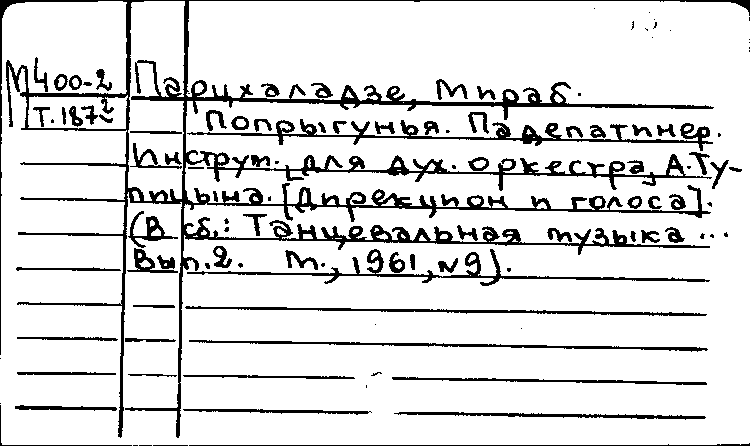 М400-2
Т.1872
Парцхаладзе, Мираб.
Попрыгунья. Падепатинер.
Инструм. [для дух. оркестра] А. Ту-
пицына. [Дирекцион и голоса].
(В сб.: Танцевальная музыка...
Вып.2. М., 1961, №9).